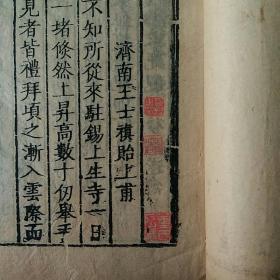 濟南王士禛貽上甫
不知所從來駐錫上生寺一日
一堵倏然上昇高數十仞舉王
見者皆禮拜頃之漸入雲際而